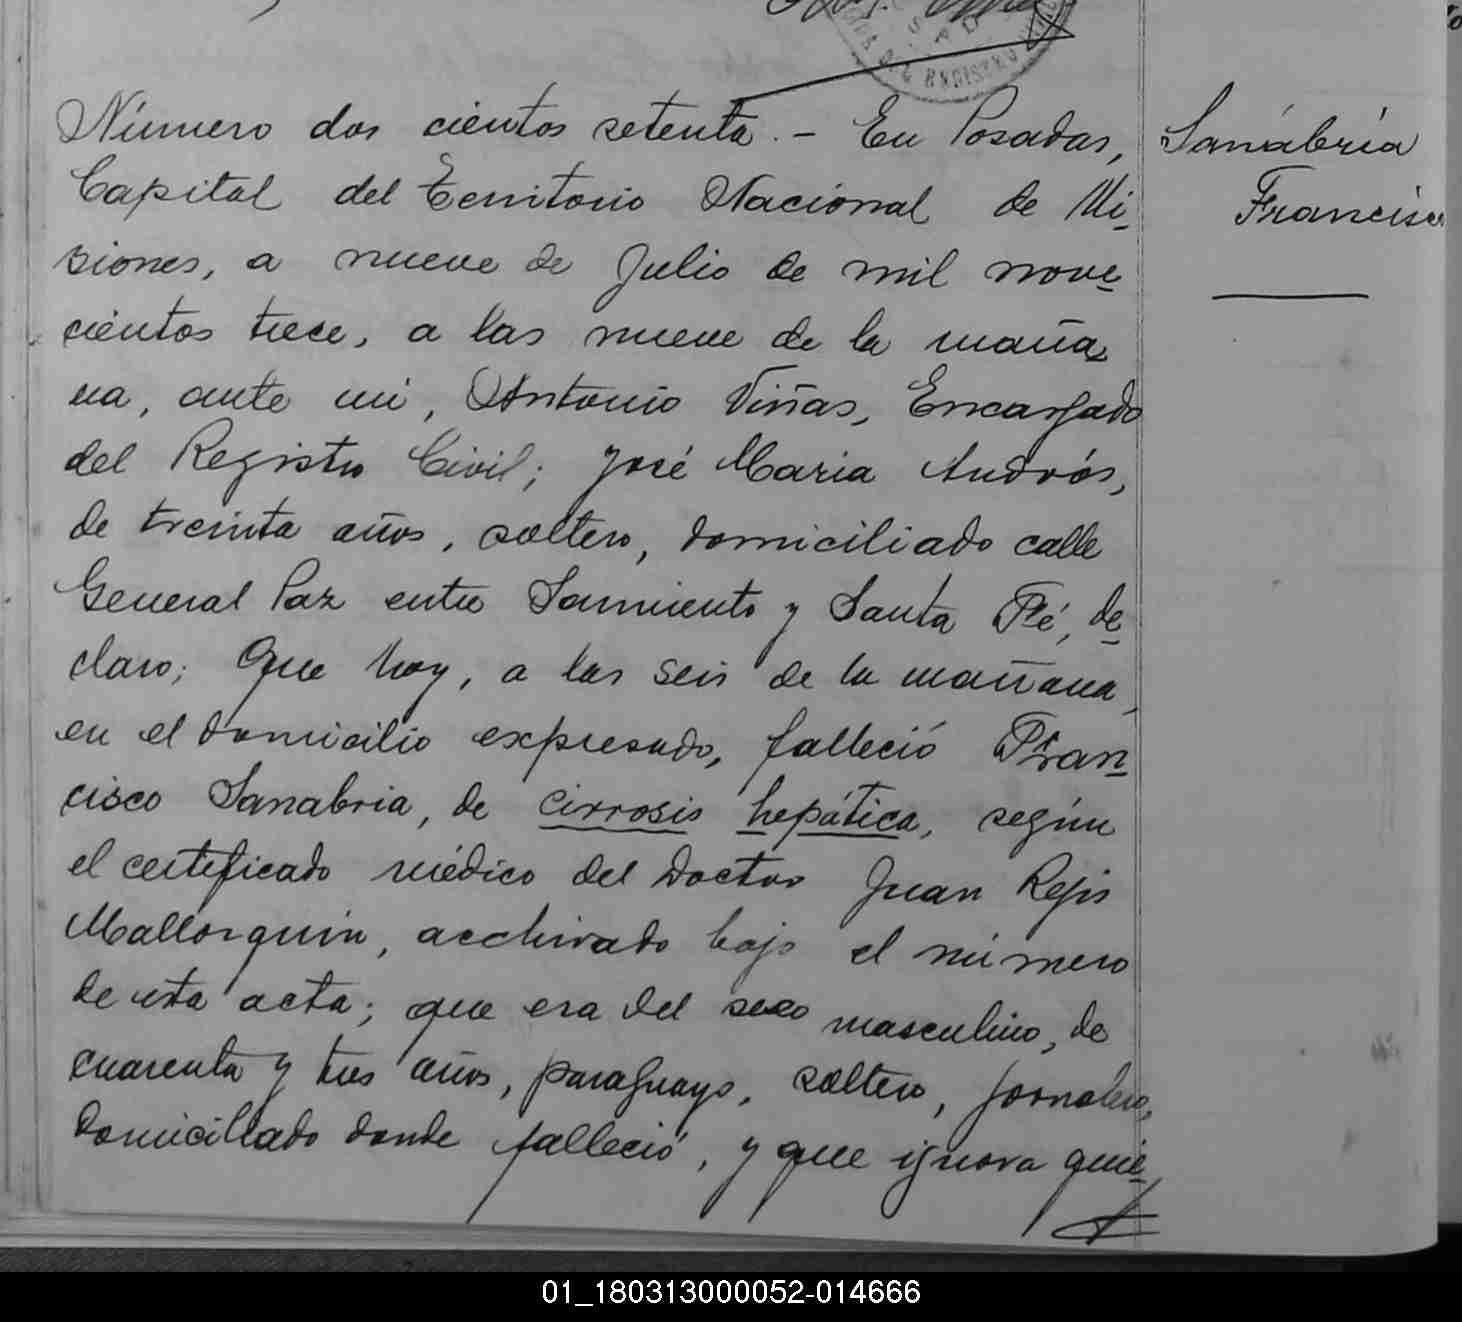 Número dos cientos setenta. - En Posadas,
Capital del Territorio Nacional de Mi-
siones, a nueve de Julio de mil nove-
cientos trece, a las nueve de la maña-
na, ante mi, Antonio Viñas, Encargado
del Registro Civil; José Maria Andrós,
de treinta años, soltero, domiciliado calle
General Paz entre Sarmiento y Santa Fé, de-
claro; Que hoy, a las seis de la mañana,
en el domicilio expresado, falleció Fran-
cisco Sanabria, de cirrosis hepática, según
el certificado médico del Doctor Juan Regis
Mallorquin, archivado bajo el número
de esta acta; que era del sexo masculino, de
cuarenta y tres años, paraguayo, soltero, jornalero,
domiciliado donde falleció, y que ignora quie-
Sanábria
Francisco
01_180313000052-014666